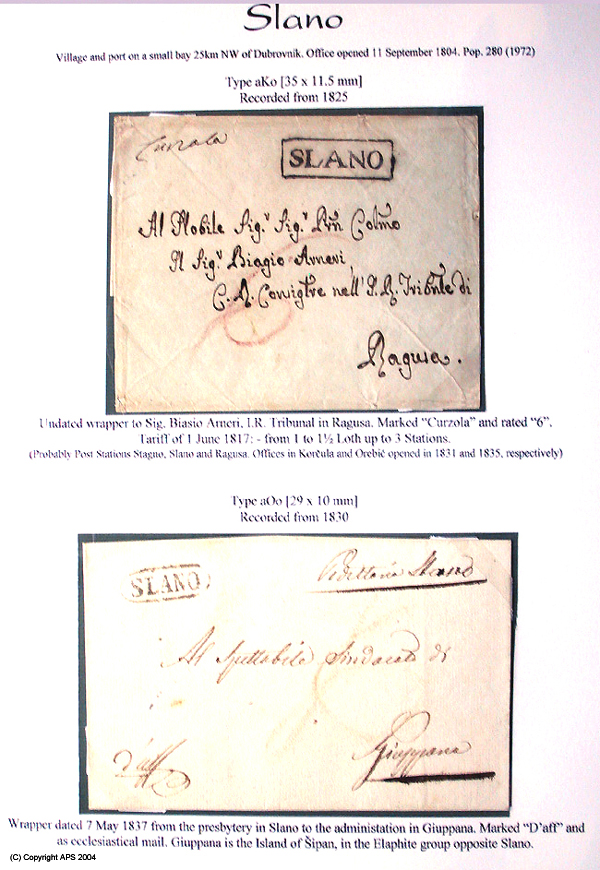 Slano
Village and port on a small bay 25km NW of Dubrovnik. Office opened 11 September 1804. Pop. 280 (1972)
Type aKo [35 x 11.5 mm]
Recorded from 1825
Curzola
SLANO
Al Nobile Sig.r Sig.r Colmo
Il Sig.r Biagio Arneri
C. R. nell' I. R. di
Ragusa.
Undated wrapper to Sig. Biasio Arneri, I.R. Tribunal in Ragusa. Marked “Curzola” and rated “6”.
Tariff of 1 June 1817: - from 1 to 1½ Loth up to 3 Stations.
(Probably Post Stations Stagno, Slano and Ragusa. Offices in Korčula and Orebić opened in 1831 and 1835, respectively)
Type aOo [29 x 10 mm]
Recorded from 1830
SLANO
Slano
Al Spettabile Sindacato di
Giuppana
d'aff
Wrapper dated 7 May 1837 from the presbytery in Slano to the administation in Giuppana. Marked “D’aff” and
as ecclesiastical mail. Giuppana is the Island of Šipan, in the Elaphite group opposite Slano.
(C) Copyright APS 2004